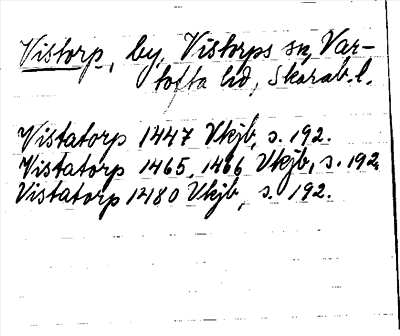 Vistorp, by, Vistorps sn, Var-
tofta hd, Skarab. l.
Vistatorp 1447 Vkjb, s. 192.
Vistatorp 1465, 1466 Vkjb, s. 192.
Vistatorp 1480 Vkjb, s. 192.